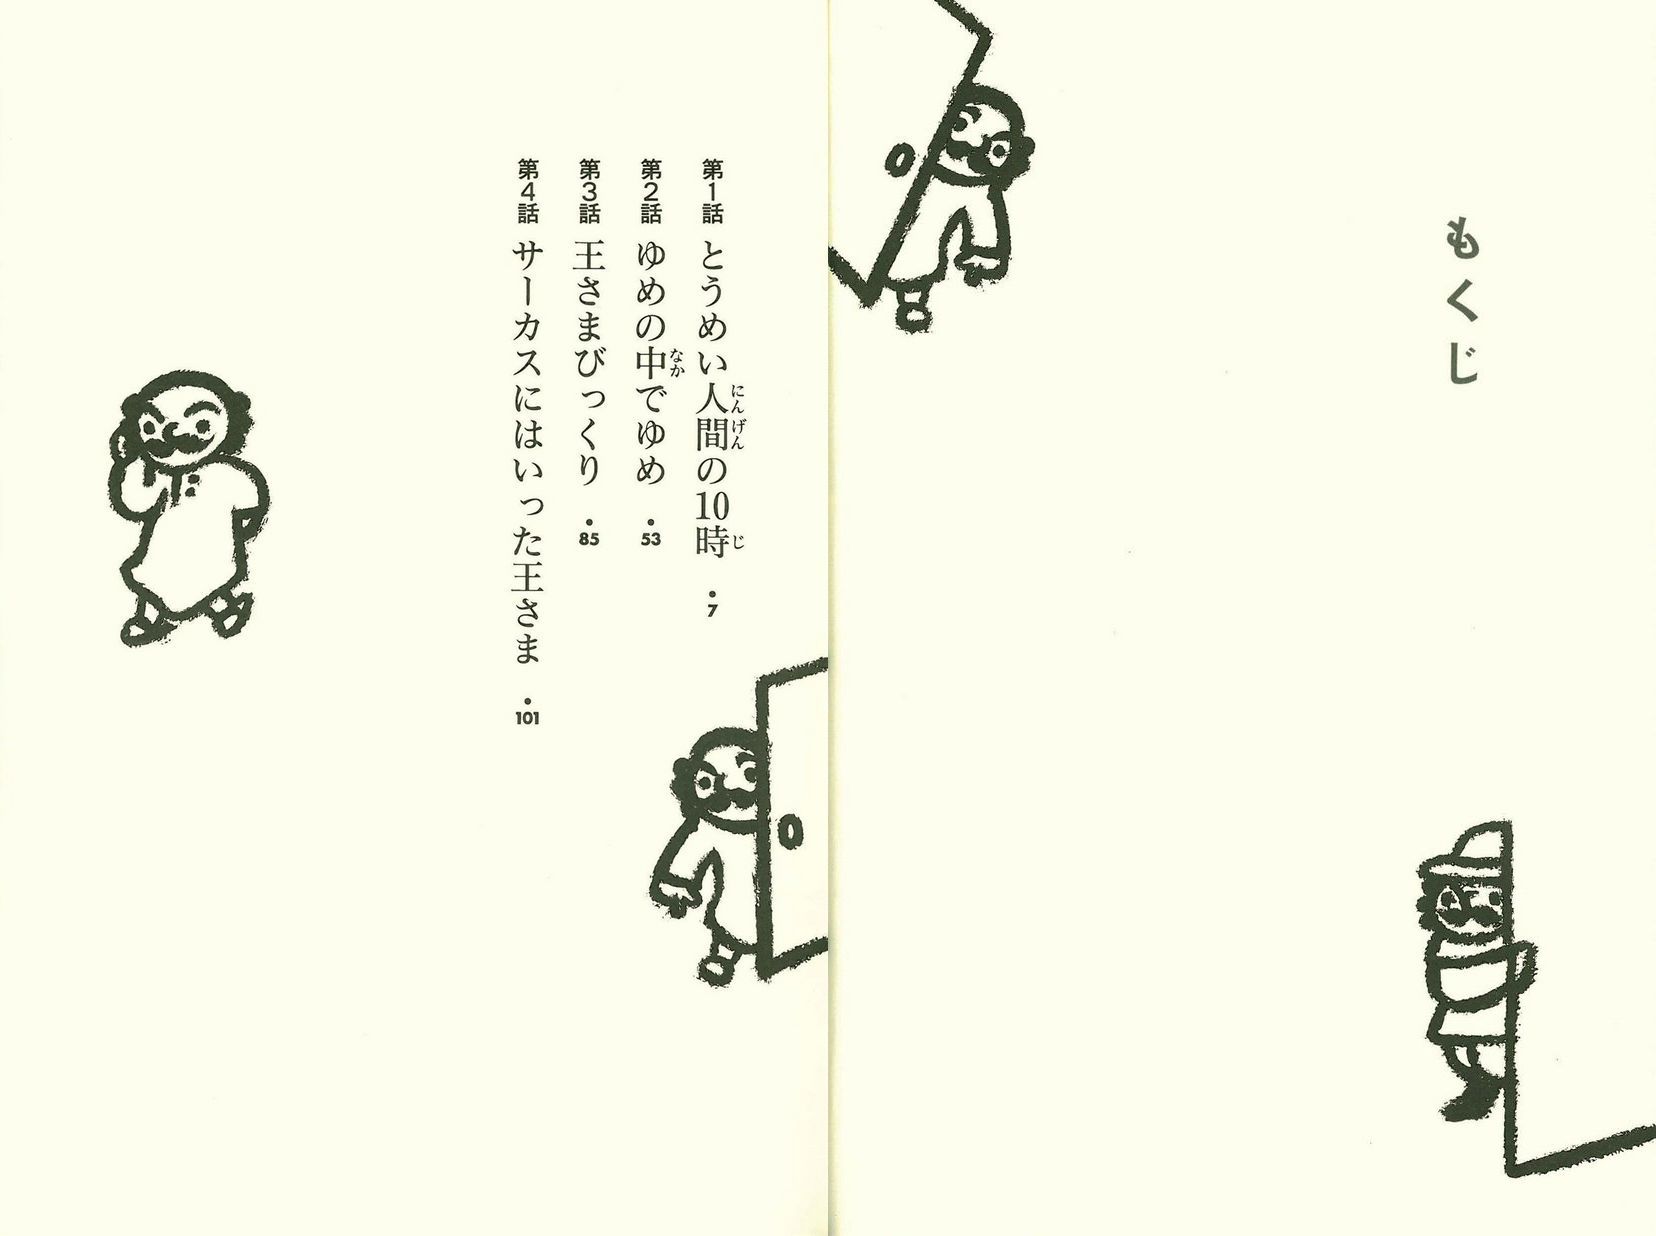 もくじ
第1話 とうめい人間の10時 ・7
第2話 ゆめの中でゆめ ・53
第3話 王さまびっくり ・85
第4話 サーカスにはいった王さま ・101